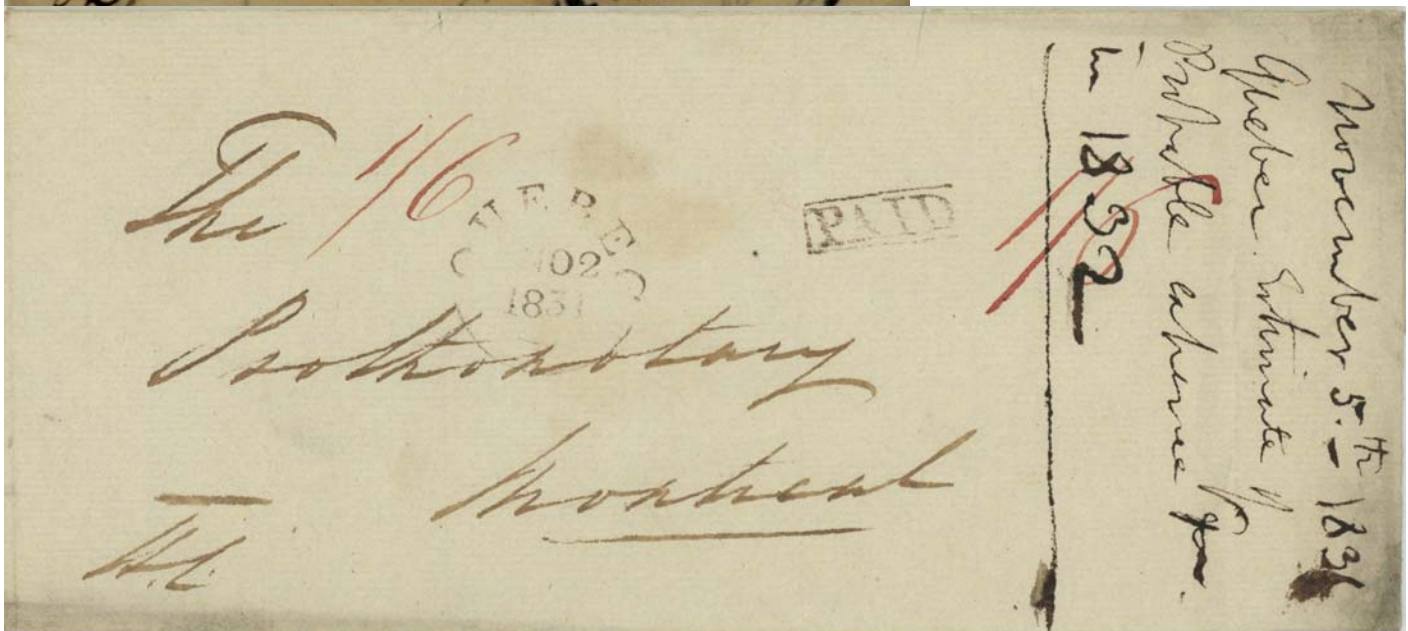 The 1/6
QUEBEC
NO 2
1831
PAID
1/6
Prothonotary
Montreal
November 5.th 1831
Quebec. Estimate of
Probable expense
in 1832